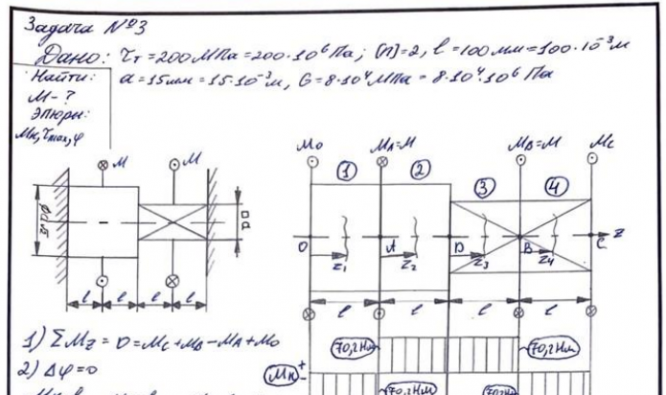 Задача №3
Дано: τт = 200 МПа = 200·10⁶ Па; [n] = 2, l = 100 мм = 100·10⁻³ м
Найти: a = 15 мм = 15·10⁻³ м, G = 8·10⁴ МПа = 8·10⁴·10⁶ Па
М - ?
Эпюры:
Мк, τmax, φ
M M
□a
l l l l
M₀ MA=M MB=M MC
1 2 3 4
O A D B C z
z₁ z₂ z₃ z₄
l l l l
1) ΣMz = 0 = MC + MB - MA + M₀
2) Δφ = 0
70,2 Нм 70,2 Нм
Мк + -
70,2 Нм 70,2 Нм